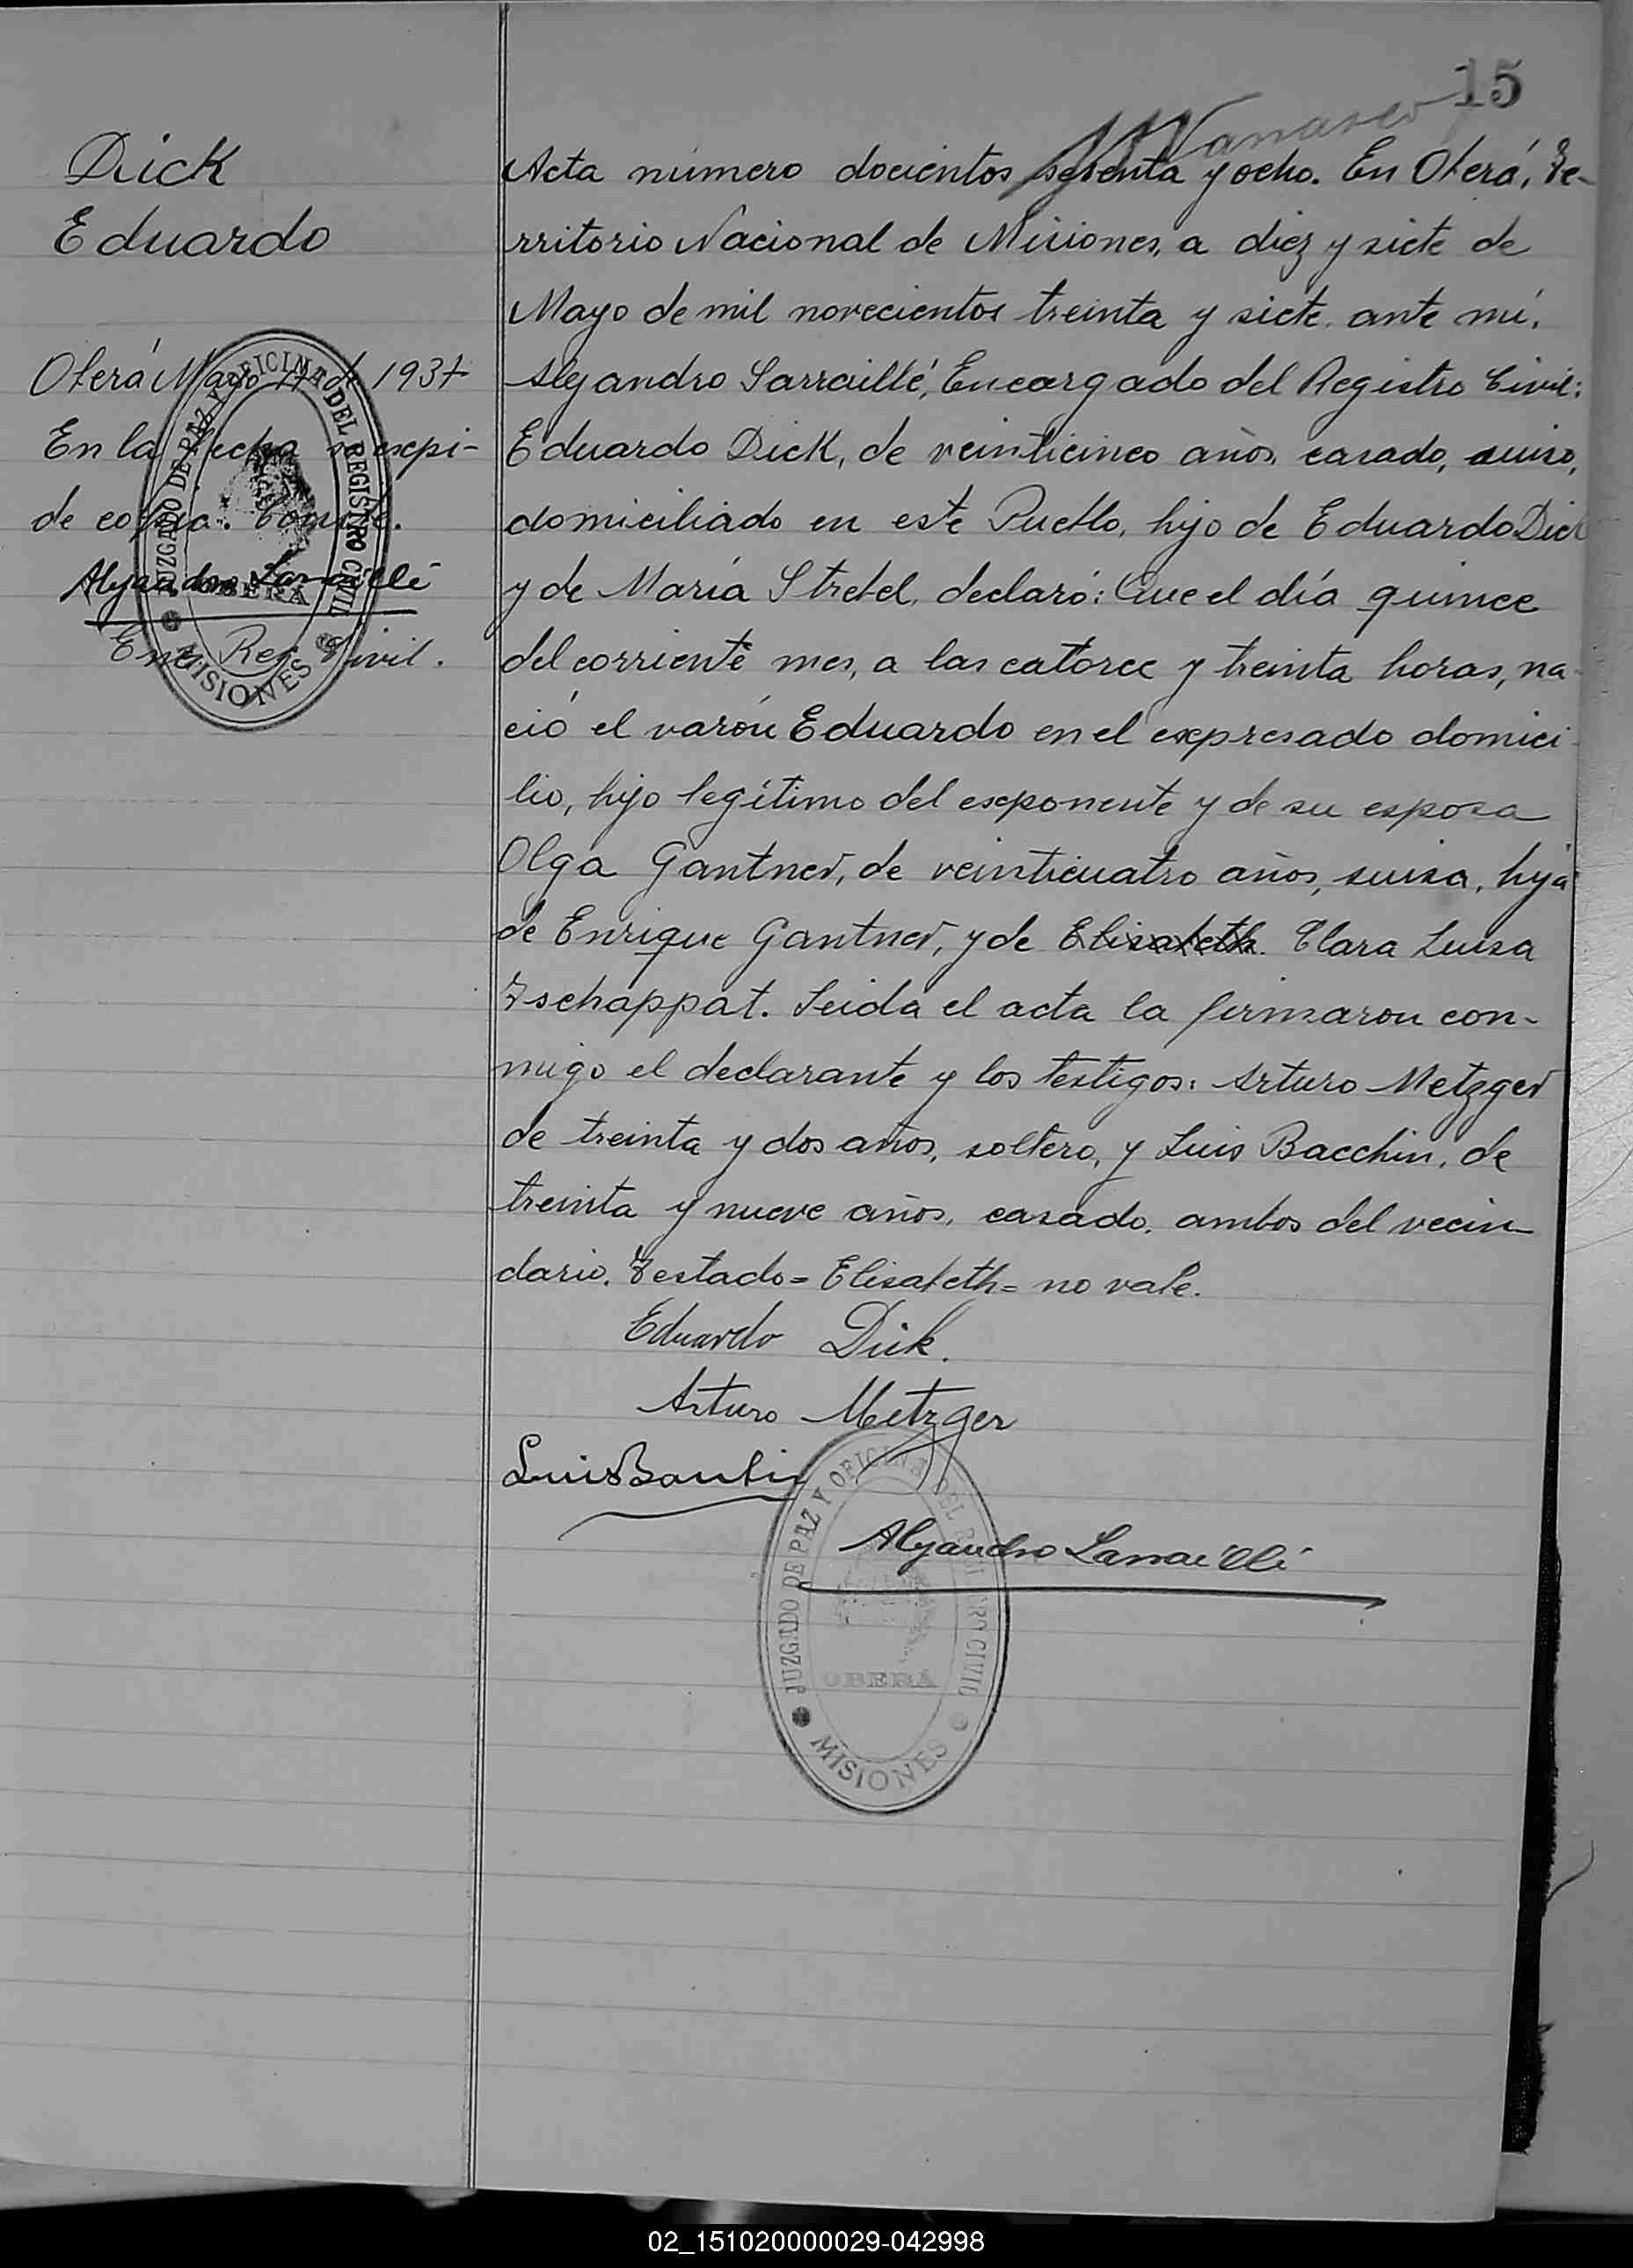 15
Dick
Eduardo
Oberá Mayo 17 de 1937
En la fecha se expi-
de copia. Conste.
Alejandro Sarraillé
Enc. Reg. Civil.
JUZGADO DE PAZ Y OFICINA DEL REGISTRO CIVIL
OBERA
MISIONES
Acta número docientos y ocho. En Oberá, Te-
rritorio Nacional de Misiones, a diez y siete de
Mayo de mil novecientos treinta y siete, ante mí,
Alejandro Sarraillé, Encargado del Registro Civil:
Eduardo Dick, de veinticinco años, casado, suizo,
domiciliado en este Pueblo, hijo de Eduardo Dick
y de María Strebel, declaró: Que el día quince
del corriente mes, a las catorce y treinta horas, na-
ció el varón Eduardo en el expresado domici-
lio, hijo legítimo del exponente y de su esposa
Olga Gantner, de veinticuatro años, suiza, hija
de Enrique Gantner, y de Elisabeth. Clara Luisa
Tschappat. Leida el acta la firmaron con-
migo el declarante y los testigos: Arturo Metzger
de treinta y dos años, soltero, y Luis Bacchin, de
treinta y nueve años, casado, ambos del vecin-
dario. Testado= Elisabeth= no vale.
Eduardo Dick.
Arturo Metzger
Luis Bacchin
Alejandro Sarraillé
JUZGADO DE PAZ Y OFICINA DEL REGISTRO CIVIL
OBERA
MISIONES
02_151020000029-042998